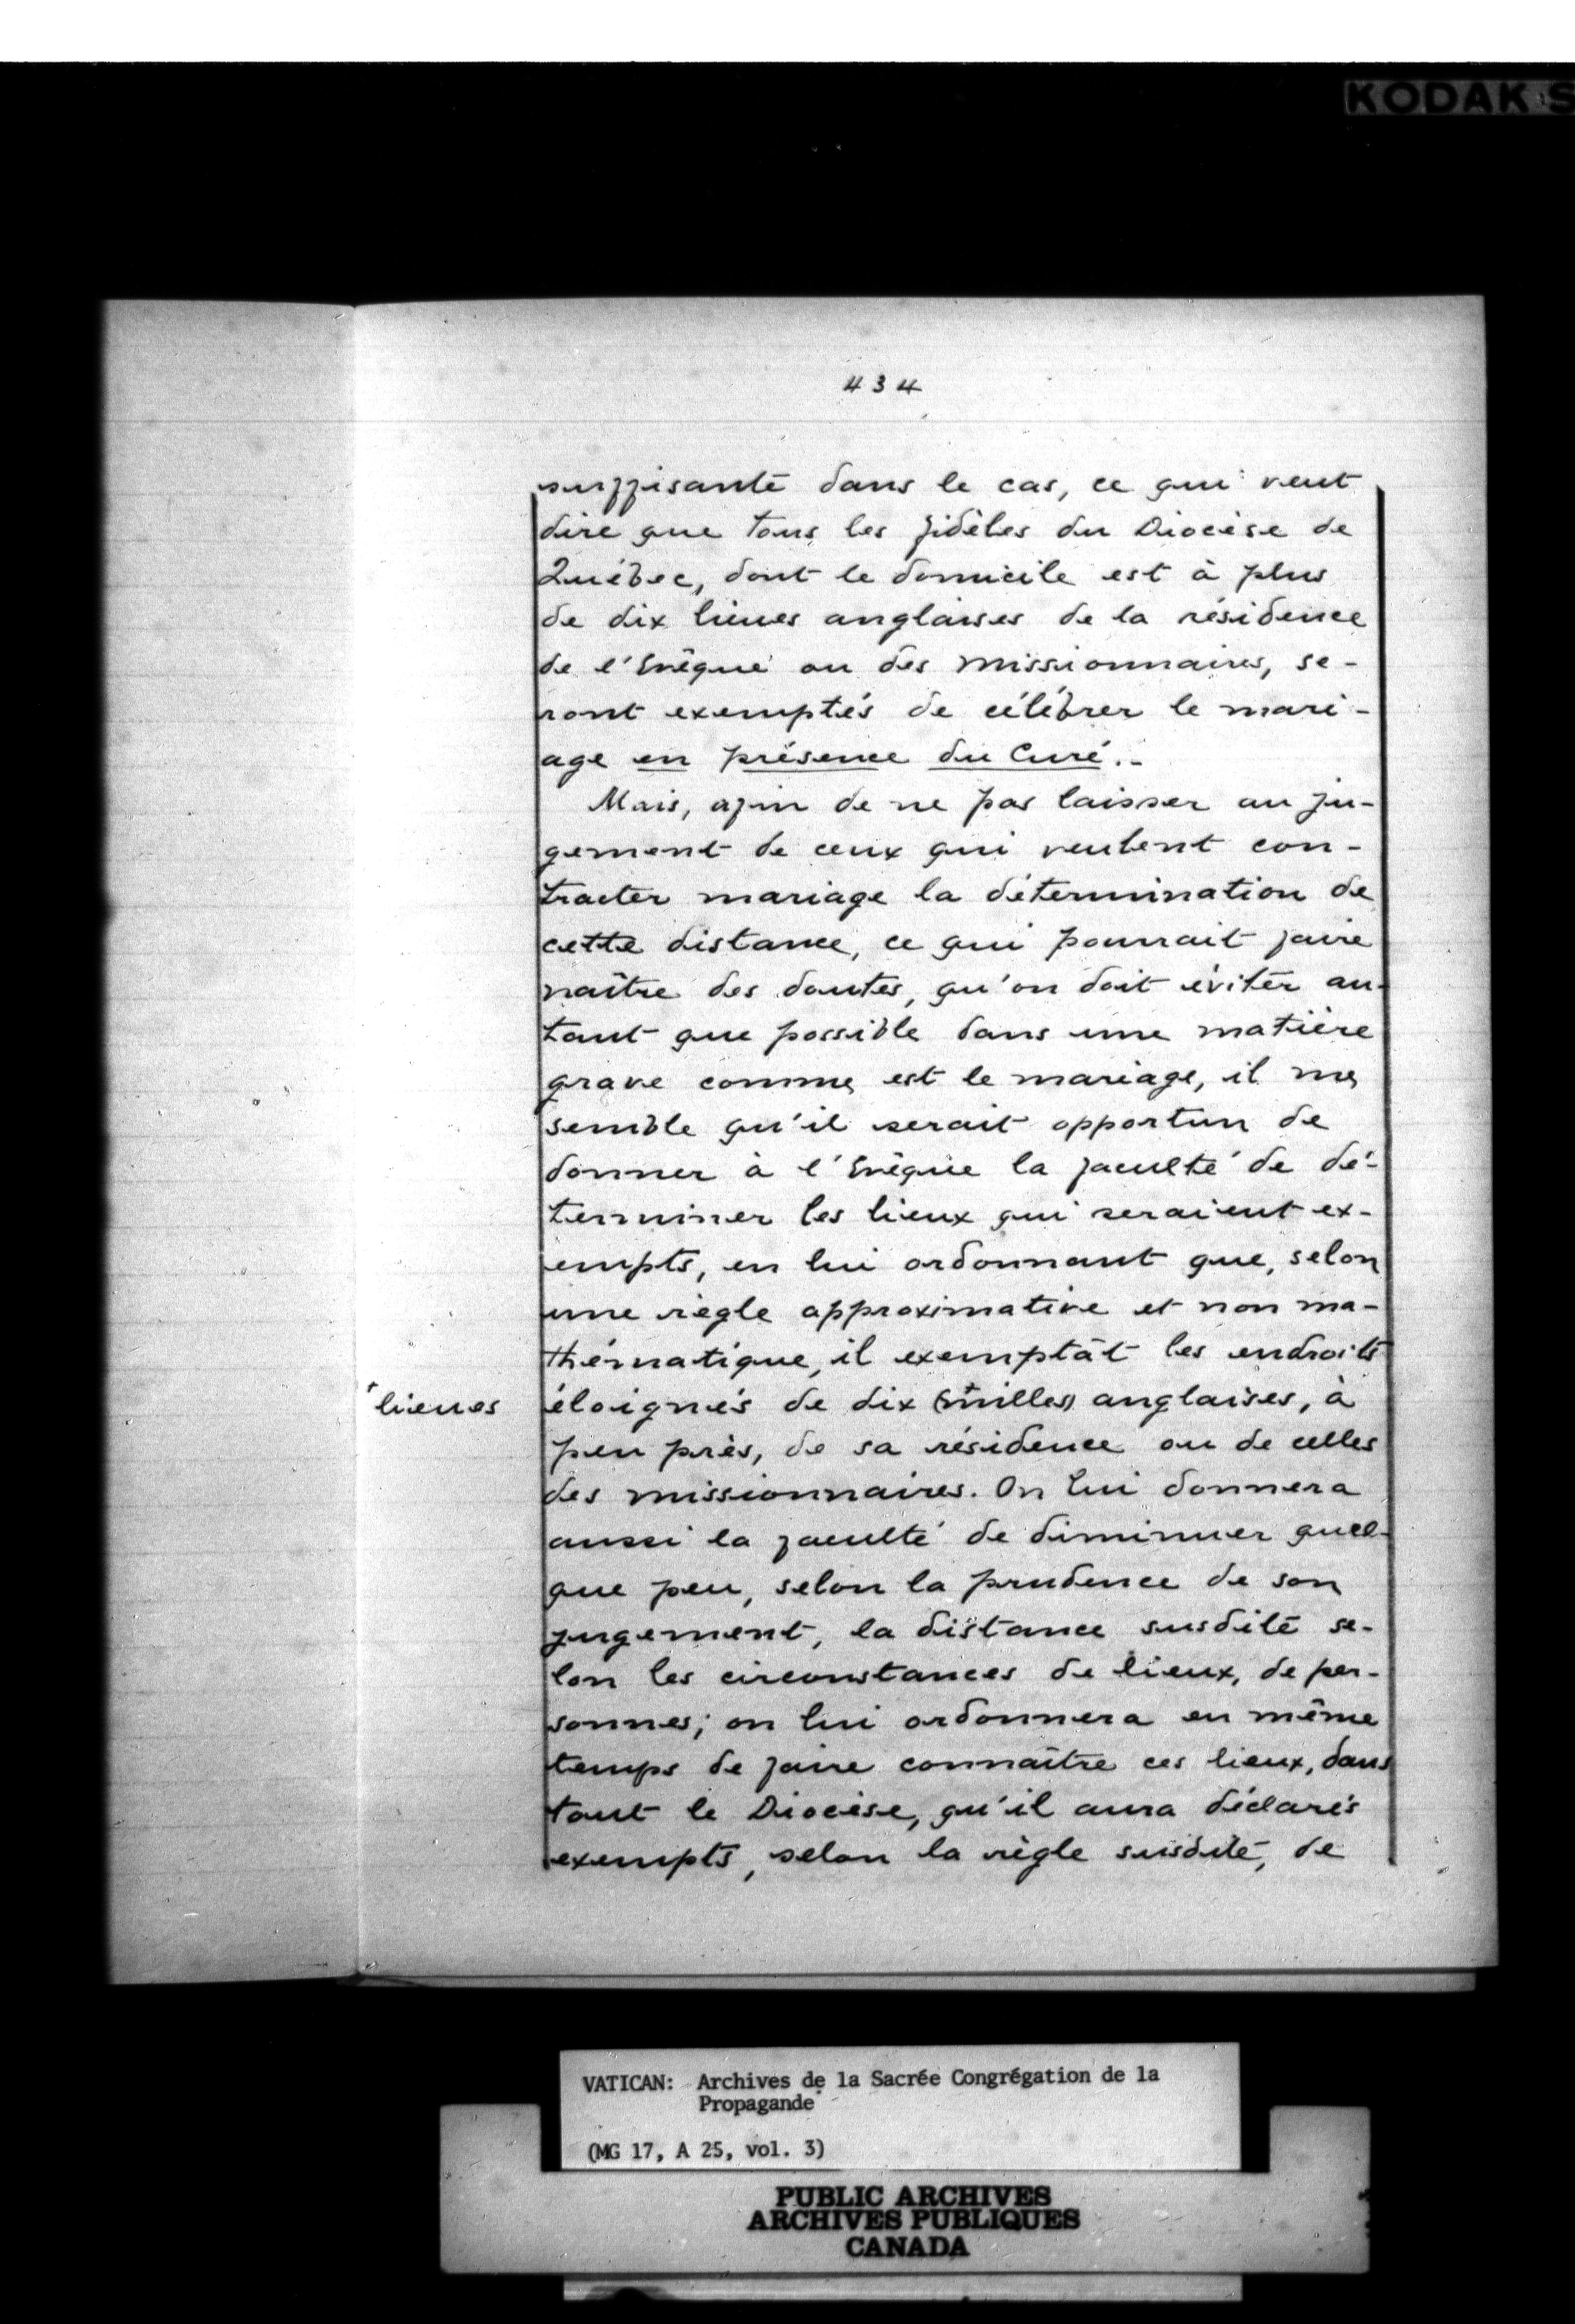 KODAK S
434
suffisante dans le cas, ce qui veut
dire que tous les fidèles du Diocèse de
Québec, dont le domicile est à plus
de dix lieues anglaises de la résidence
de l'Evêque ou des missionnaires, se-
ront exemptés de célébrer le mari-
age en présence du Curé.-
Mais, afin de ne pas laisser au ju-
gement de ceux qui veulent con-
tracter mariage la détermination de
cette distance, ce qui pourrait faire
naître des doutes, qu'on doit éviter au-
tant que possible dans une matière
grave comme est le mariage, il me
semble qu'il serait opportun de
donner à l'Evêque la faculté de dé-
terminer les lieux qui seraient ex-
empts, en lui ordonnant que, selon
une règle approximative et non ma-
thématique, il exemptât les endroits
+ lieues
éloignés de dix (+milles) anglaises, à
peu près, de sa résidence ou de celles
des missionnaires. On lui donnera
aussi la faculté de diminuer quel-
que peu, selon la prudence de son
jugement, la distance susdite se-
lon les circonstances de lieux, de per-
sonnes; on lui ordonnera en même
temps de faire connaître ces lieux, dans
tout le Diocèse, qu'il aura déclarés
exempts, selon la règle susdite, de
VATICAN: Archives de la Sacrée Congrégation de la
Propagande
(MG 17, A 25, vol. 3)
PUBLIC ARCHIVES
ARCHIVES PUBLIQUES
CANADA